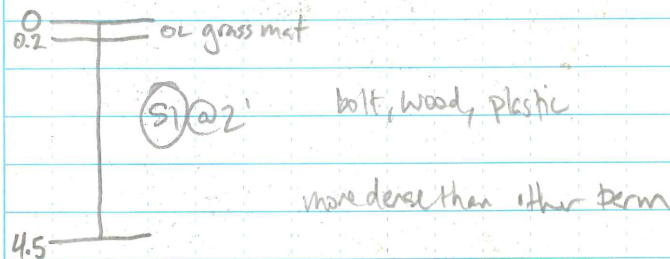 0
0.2 OL grass mat
S1 @ 2' bolt, wood, plastic
more dense than other berm
4.5